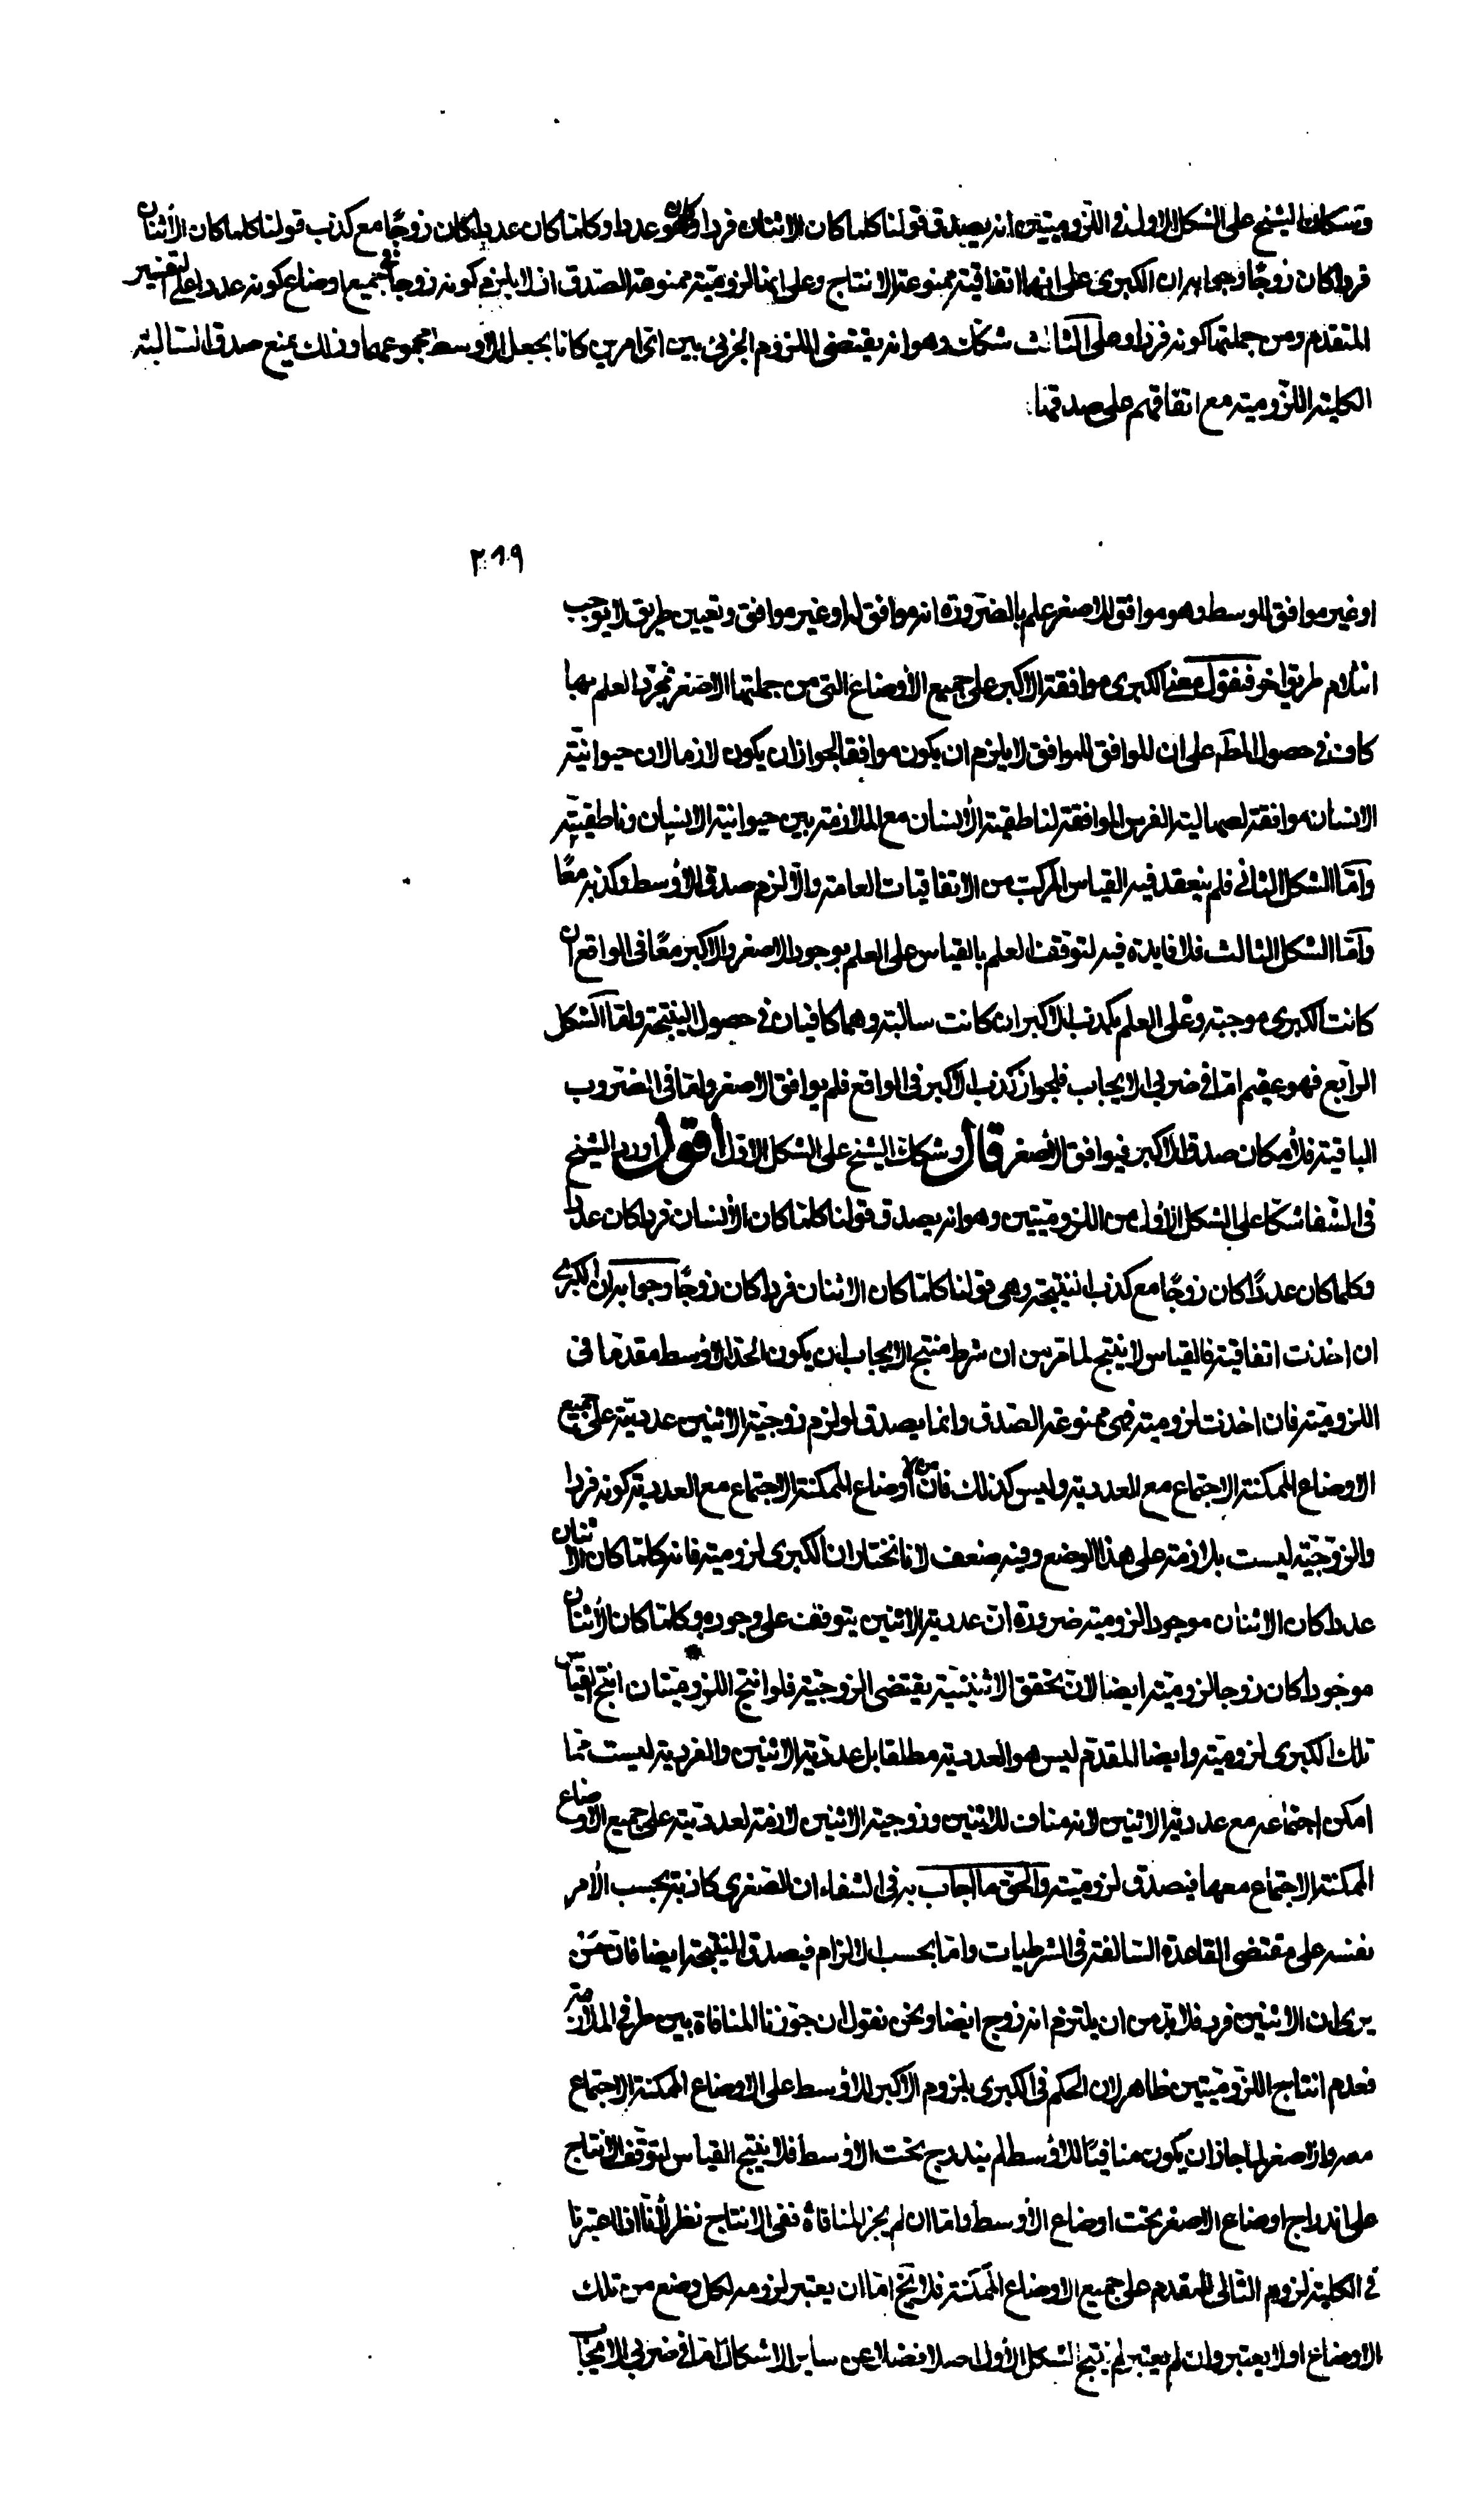 وتشكك الشيخ على الشكل الاول في اللزوميتين انه يصدق قولنا كلما كان الاثنان فردا كان عددا وكلما كان عددا كان زوجًا مع كذب قولنا كلما كان الأثنان
فردا كان زوجًا وجوابه ان الكبرى على انها اتفاقية ممنوعة الانتاج وعلى انها لزومية ممنوعة الصدق اذ لا يلزم كونه زوجًا في جميع اوضاع كونه عددا على التفسير
المتقدم ومن جملتها كونه فردا وعلى الثالث شكك وهو انه يقتضى اللزوم الجزئى بين اى امرين كانا بجعل الاوسط مجموعهما وذلك يمنع صدق السالبة
الكلية اللزومية مع اتفاقهم على صدقها
٢٦٩
او غير موافق للوسط وهو موافق للاصغر علم بالضرورة انه موافق له او غير موافق وتعيين طريق لا يوجب
انثلام طريق اخر فنقول معنى الكبرى موافقة الأكبر على جميع الأوضاع التى من جملتها الاصغر فمجرد العلم بها
كاف في حصول المطم على ان للموافق للموافق لا يلزم ان يكون موافقا لجواز ان يكون لازما لان حيوانية
الانسان موافقة لصهالية الفرس الموافقة لناطقية الأنسان مع الملازمة بين حيوانية الانسان وناطقيته
وأمّا الشكل الثاني فلم ينعقد فيه القياس المركب من الاتفاقيات العامة والّا لزم صدق الأوسط وكذبه معًا
وأمّا الشكل الثالث فلا فايدة فيه لتوقف العلم بالقياس على العلم بوجود الاصغر والاكبر معًا في الواقع ان
كانت الكبرى موجبة وعلى العلم بكذب الأكبر ان كانت سالبة وهما كافيان في حصول النتيجة وأمّا الشكل
الرابع فهو عقيم امّا في ضربى الايجاب فلجواز كذب الأكبر في الواقع فلم يوافق الاصغر وامّا في الضروب
الباقية فلأمكان صدق الأكبر فيوافق الأصغر قال وشكك الشيخ على الشكل الاول أقول اورد الشيخ
في الشفا شكّا على الشكل الأول من اللزوميتين وهو انه يصدق قولنا كلما كان الأنسان فردا كان عددا
وكلما كان عددًا كان زوجًا مع كذب النتيجة وهى قولنا كلما كان الاثنان فردا كان زوجًا وجوابه ان الكبرى
ان اخذت اتفاقية فالقياس لا ينتج لما مر من ان شرط منتج الايجاب ان يكون الحد الأوسط مقدمًا في
اللزومية فان اخذت لزومية فهى ممنوعة الصدق وانما يصدق لو لزم زوجية الاثنين عددية على جميع
الاوضاع الممكنة الاجتماع مع العددية وليس كذلك فان من الأوضاع الممكنة الاجتماع مع العددية كونه فردا
والزوجية ليست بلازمة على هذا الوضع وفيه ضعف لانا نختار ان الكبرى لزومية فانه كلما كان الاثنان
عددا كان الاثنان موجودا لزومية ضرورة ان عددية الاثنين يتوقف على وجوده وكلما كان الأثنان
موجودا كان زوجا لزومية ايضا لان تحقق الاثنينية يقتضى الزوجية فلو انتج اللزوميتان انتج القياس
تلك الكبرى لزومية وايضا المقدم ليس هو العددية مطلقا بل عددية الاثنين والفردية ليست مما
امكن اجتماعه مع عددية الاثنين لانه مناف للاثنين وزوجية الاثنين لازمة لعددية على جميع الاوضاع
الممكنة الاجتماع معها فيصدق لزومية والحق ما اجاب به في الشفاء ان الصغرى كاذبة بحسب الأمر
نفسه على مقتضى القاعدة السالفة في الشرطيات وامّا بحسب الالزام فيصدق النتيجة ايضا فان من
يرى ان الاثنين فرد فلا بد من ان يلتزم انه زوج ايضا ونحن نقول ان جوزنا المنافاة بين طرفي الملازمة
فعدم انتاج اللزوميتين ظاهر لان الحكم في الكبرى بلزوم الأكبر للاوسط على الاوضاع الممكنة الاجتماع
معه والاصغر لما جاز ان يكون منافيًا للأوسط لم يندرج تحت الاوسط فلا ينتج القياس لتوقف الانتاج
على اندراج اوضاع الاصغر تحت اوضاع الأوسط وامّا ان لم يجز المنافاة ففى الانتاج نظر لأنا اذا اعتبرنا
في الكلية لزوم التالى للمقدم على جميع الاوضاع الممكنة فلا يخ امّا ان يعتبر لزومه لكل وضع من تلك
الاوضاع اولا يعتبر وان لم يعتبر لم ينتج الشكل الأول اصلا فضلا عن ساير الاشكال امّا في ضربى الايجاب